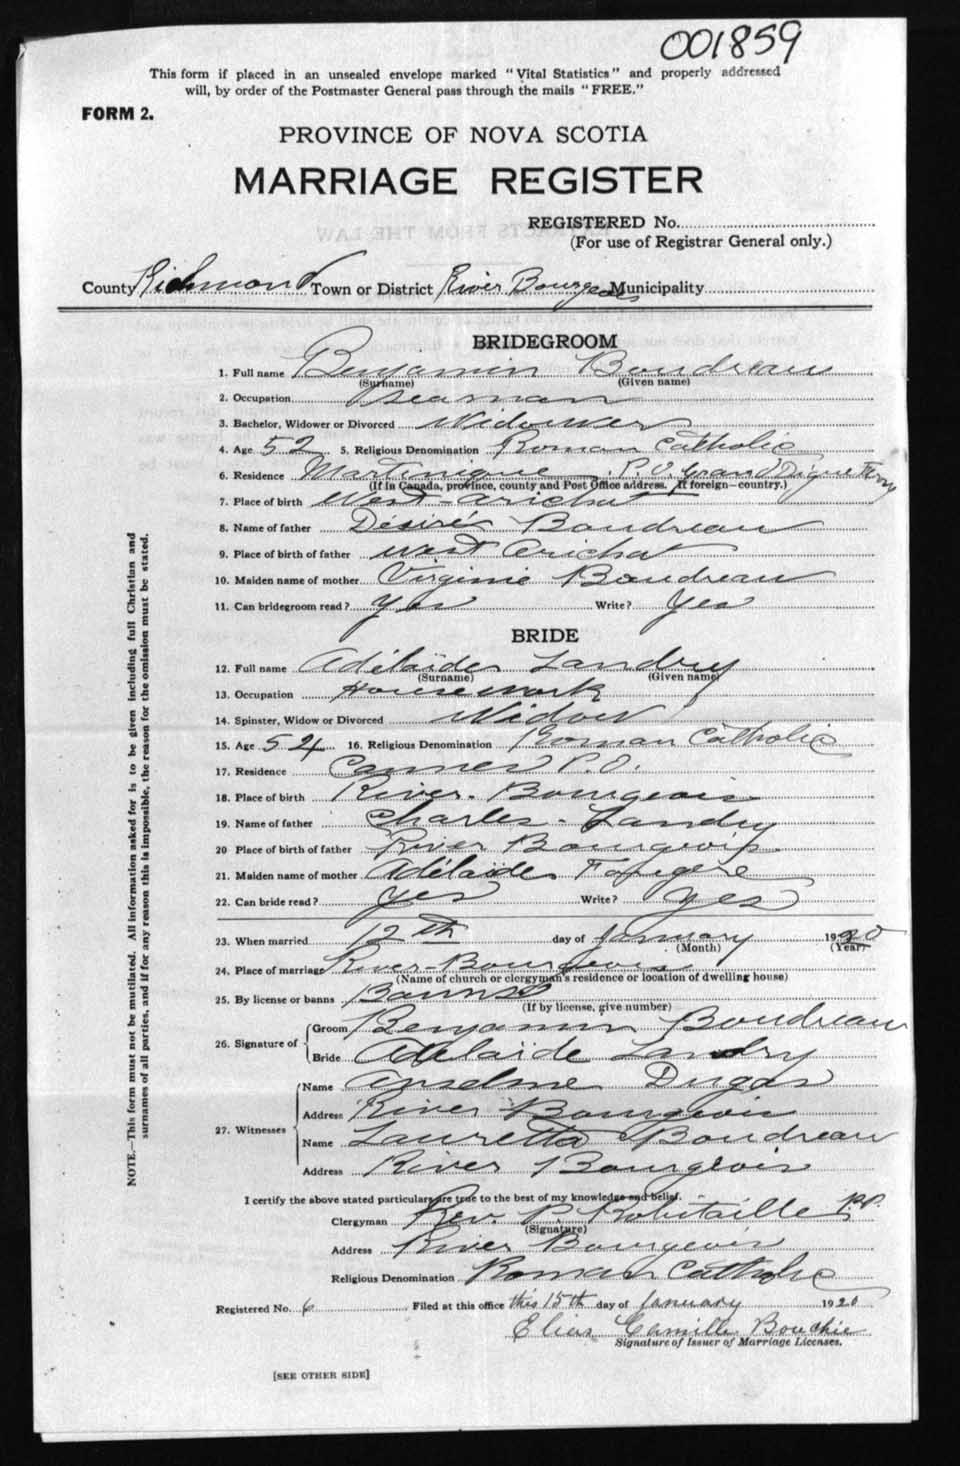 001859
This form if placed in an unsealed envelope marked "Vital Statistics" and properly addressed
will, by order of the Postmaster General pass through the mails "FREE."
FORM 2.
PROVINCE OF NOVA SCOTIA
MARRIAGE REGISTER
REGISTERED No.
(For use of Registrar General only.)
County Richmond Town or District River Bourgeois Municipality
BRIDEGROOM
1. Full name Benjamin Boudreau
(Surname) (Given name)
2. Occupation Seaman
3. Bachelor, Widower or Divorced Widower
4. Age 52 5. Religious Denomination Roman Catholic
6. Residence Martinique P.O. Grand Digue Ferry
(If in Canada, province, county and Post Office address. If foreign—country.)
7. Place of birth West Arichat
8. Name of father Désiré Boudreau
9. Place of birth of father West Arichat
10. Maiden name of mother Virginie Boudreau
11. Can bridegroom read? yes Write? yes
BRIDE
12. Full name Adélaïde Landry
(Surname) (Given name)
13. Occupation Housework
14. Spinster, Widow or Divorced Widow
15. Age 54 16. Religious Denomination Roman Catholic
17. Residence Cannes P.O.
18. Place of birth River Bourgeois
19. Name of father Charles Landry
20 Place of birth of father River Bourgeois
21. Maiden name of mother Adélaïde Fougère
22. Can bride read? yes Write? yes
23. When married 12th day of January 1920
(Month) (Year)
24. Place of marriage River Bourgeois
(Name of church or clergyman's residence or location of dwelling house)
25. By license or banns Banns
(If by license, give number)
26. Signature of Groom Benjamin Boudreau
Bride Adelaide Landry
27. Witnesses Name Anselme Dugas
Address River Bourgeois
Name Lauretta Boudreau
Address River Bourgeois
I certify the above stated particulars are true to the best of my knowledge and belief.
Clergyman Rev. P. Robitaille P.P.
(Signature)
Address River Bourgeois
Religious Denomination Roman Catholic
Registered No. 6 Filed at this office this 15th day of January 1920
Elias Camille Bouchie
Signature of Issuer of Marriage Licenses.
[SEE OTHER SIDE]
NOTE.—This form must not be mutilated. All information asked for is to be given including full Christian and
surnames of all parties, and if for any reason this is impossible, the reason for the omission must be stated.